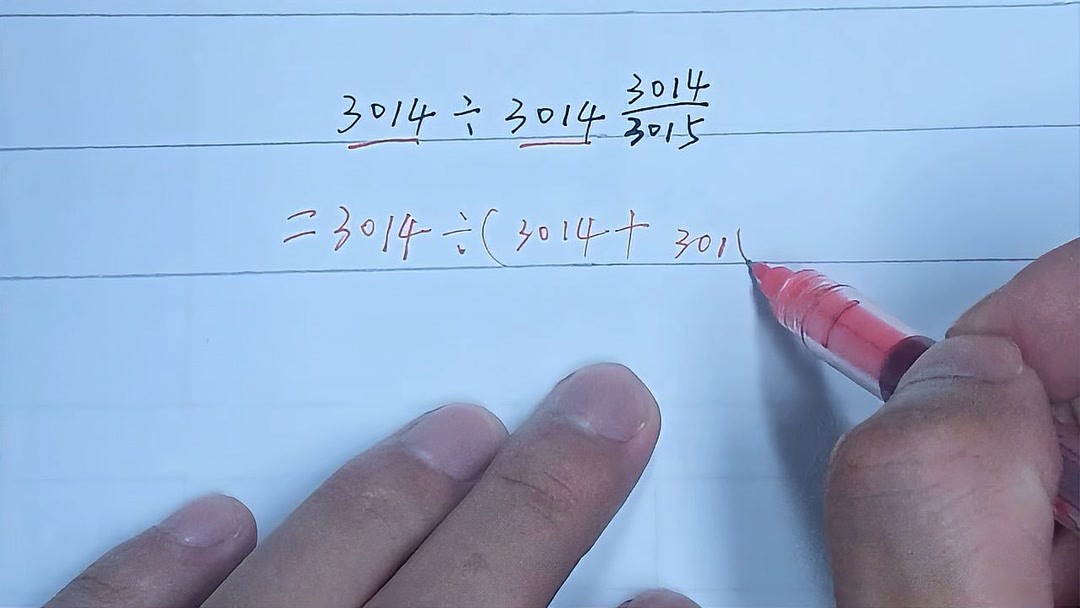 3014 ÷ 3014 3014/3015
= 3014 ÷ ( 3014 + 301